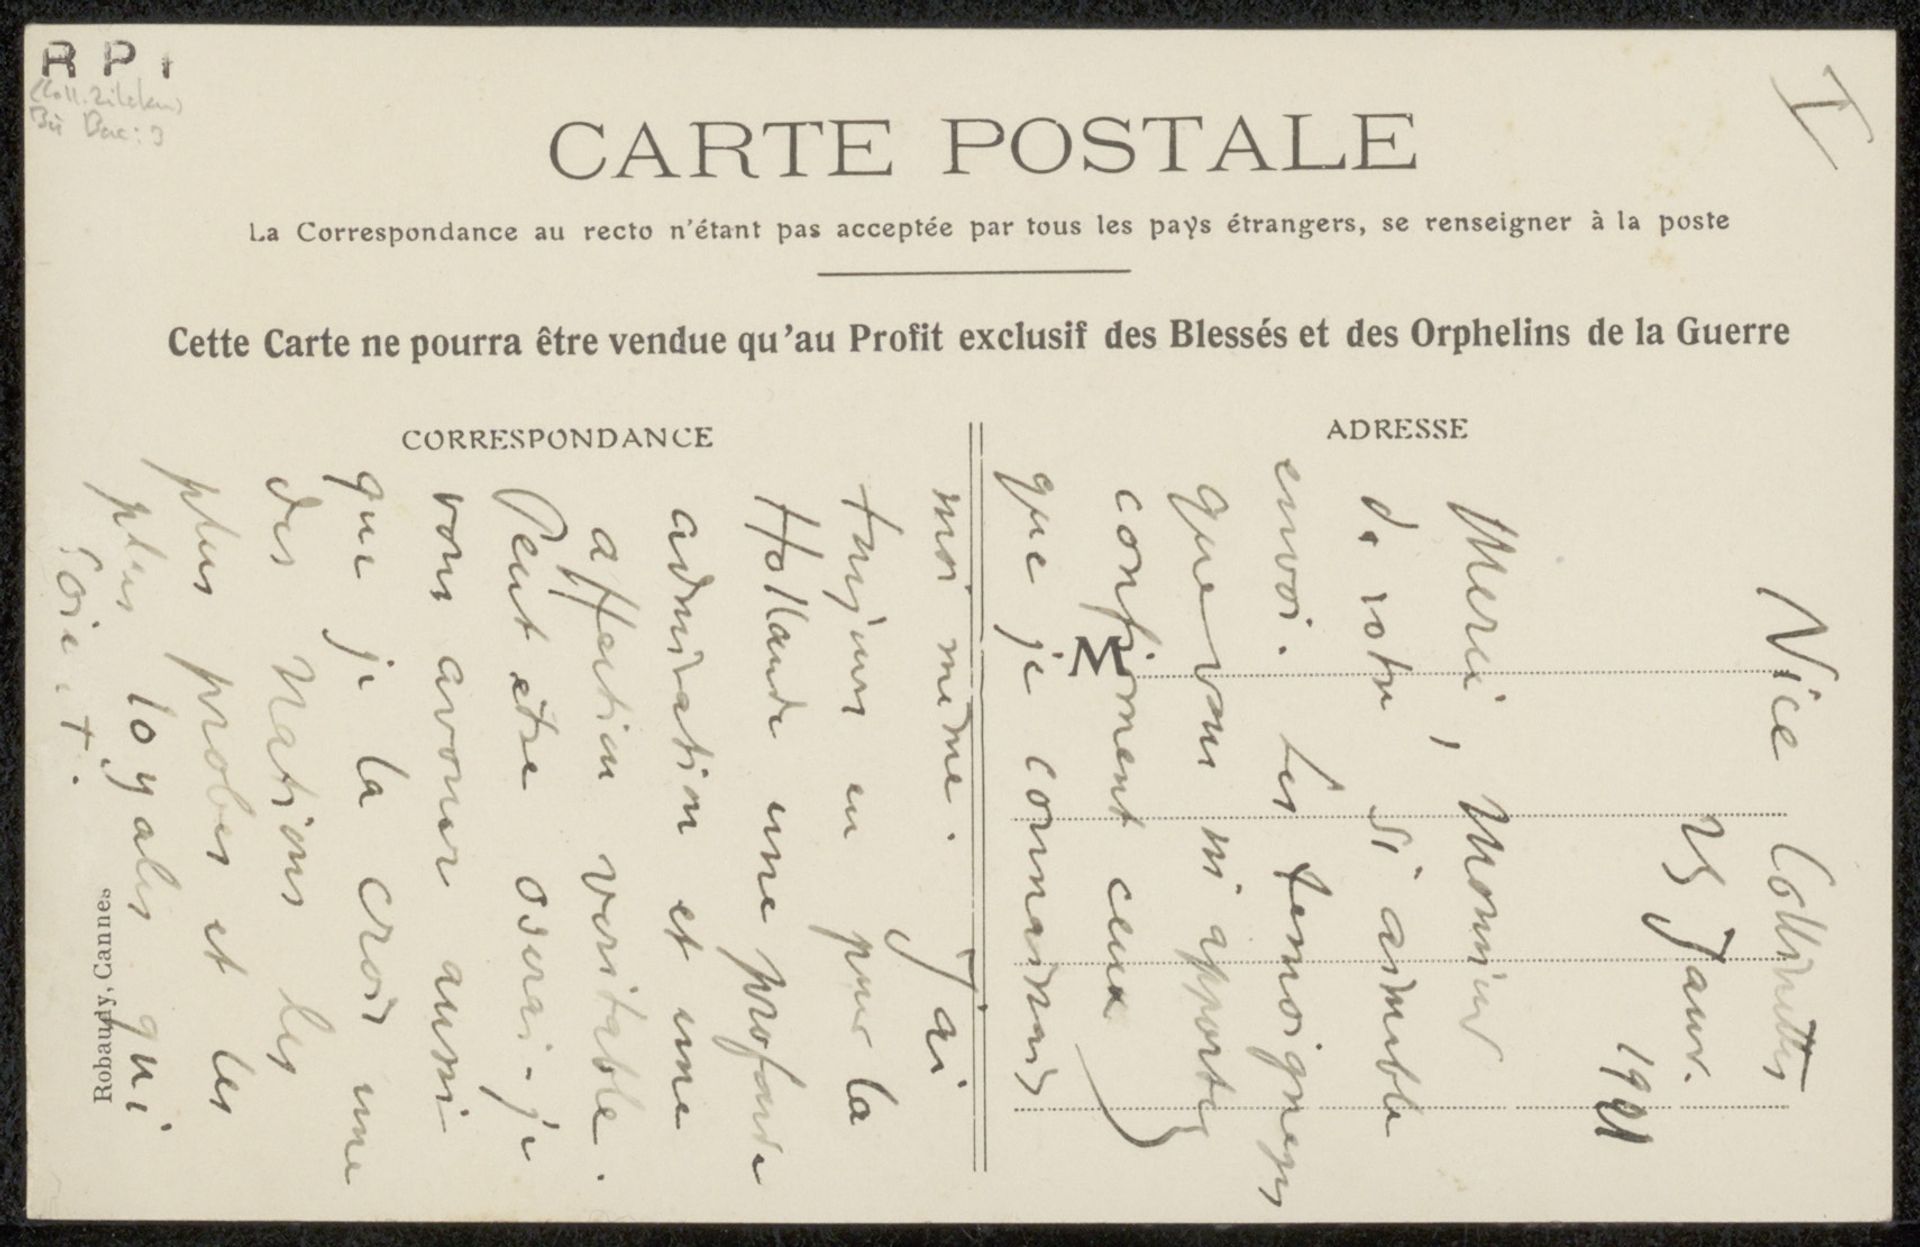 RPI
(Coll. Zilcken)
CARTE POSTALE
I
La Correspondance au recto n'étant pas acceptée par tous les pays étrangers, se renseigner à la poste
Cette Carte ne pourra être vendue qu'au Profit exclusif des Blessés et des Orphelins de la Guerre
CORRESPONDANCE
ADRESSE
M
Robaudy, Cannes
Nice Collinettes
25 Janv.
1921
Merci, Monsieur
de votre si aimable
envoi. Les temoignages
que vous m'apportez
confirment ceux
que je connaissais
moi même. J'ai
toujours eu pour la
Hollande une profonde
admiration et une
affection veritable.
Peut être oserai-je
vous avouer aussi
que je la crois une
des Nations les
plus probes et les
plus loyales qui
soient.